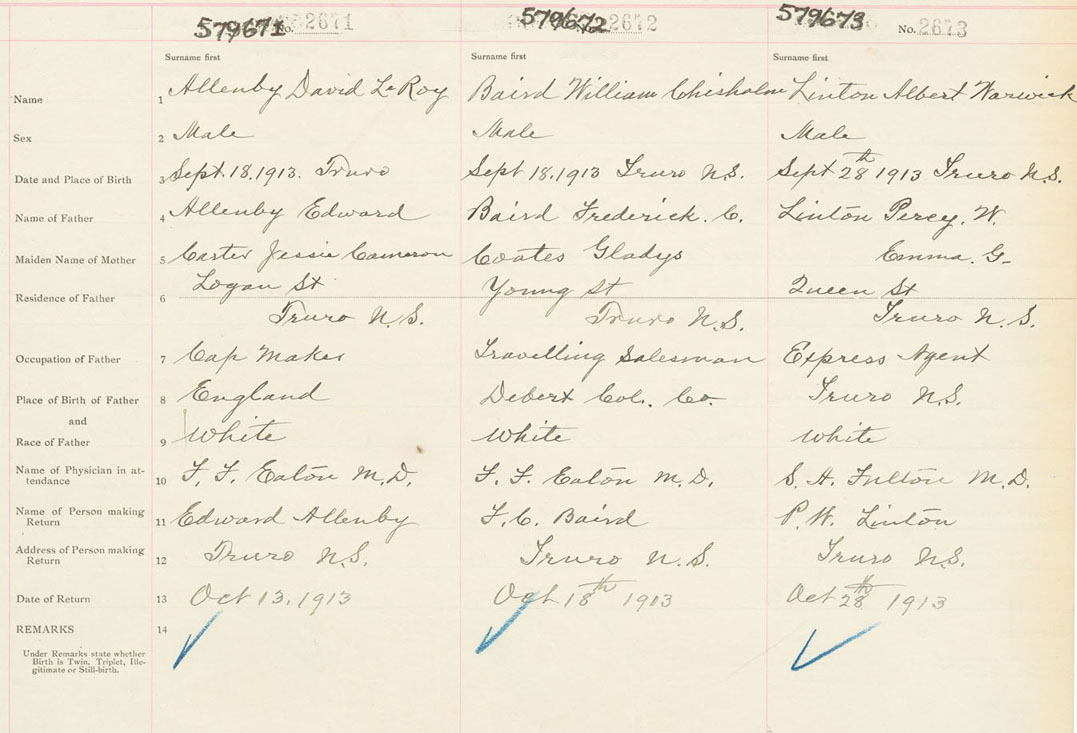 579671 No. 2671 579672 2672 579673 No. 2673
Surname first Surname first Surname first
Name 1 Allenby David LeRoy Baird William Chisholm Linton Albert Warwick
Sex 2 Male Male Male
Date and Place of Birth 3 Sept. 18. 1913. Truro Sept 18. 1913 Truro N.S. Sept 28th 1913 Truro N.S.
Name of Father 4 Allenby Edward Baird Frederick. C. Linton Percy. W.
Maiden Name of Mother 5 Carter Jessie Cameron Coates Gladys Emma. G.
Logan St Young St Queen St
Residence of Father 6
Truro N.S. Truro N.S. Truro N.S.
Occupation of Father 7 Cap Maker Travelling Salesman Express Agent
Place of Birth of Father 8 England Debert Col. Co. Truro N.S.
and
Race of Father 9 White White White
Name of Physician in at-
tendance 10 F. F. Eaton M.D. F. F. Eaton M.D. S. H. Fulton M.D.
Name of Person making
Return 11 Edward Allenby F. C. Baird P. W. Linton
Address of Person making
Return 12 Truro N.S. Truro N.S. Truro N.S.
Date of Return 13 Oct 13, 1913 Oct 18th 1913 Oct 28th 1913
REMARKS 14
Under Remarks state whether
Birth is Twin, Triplet, Ille-
gitimate or Still-birth.